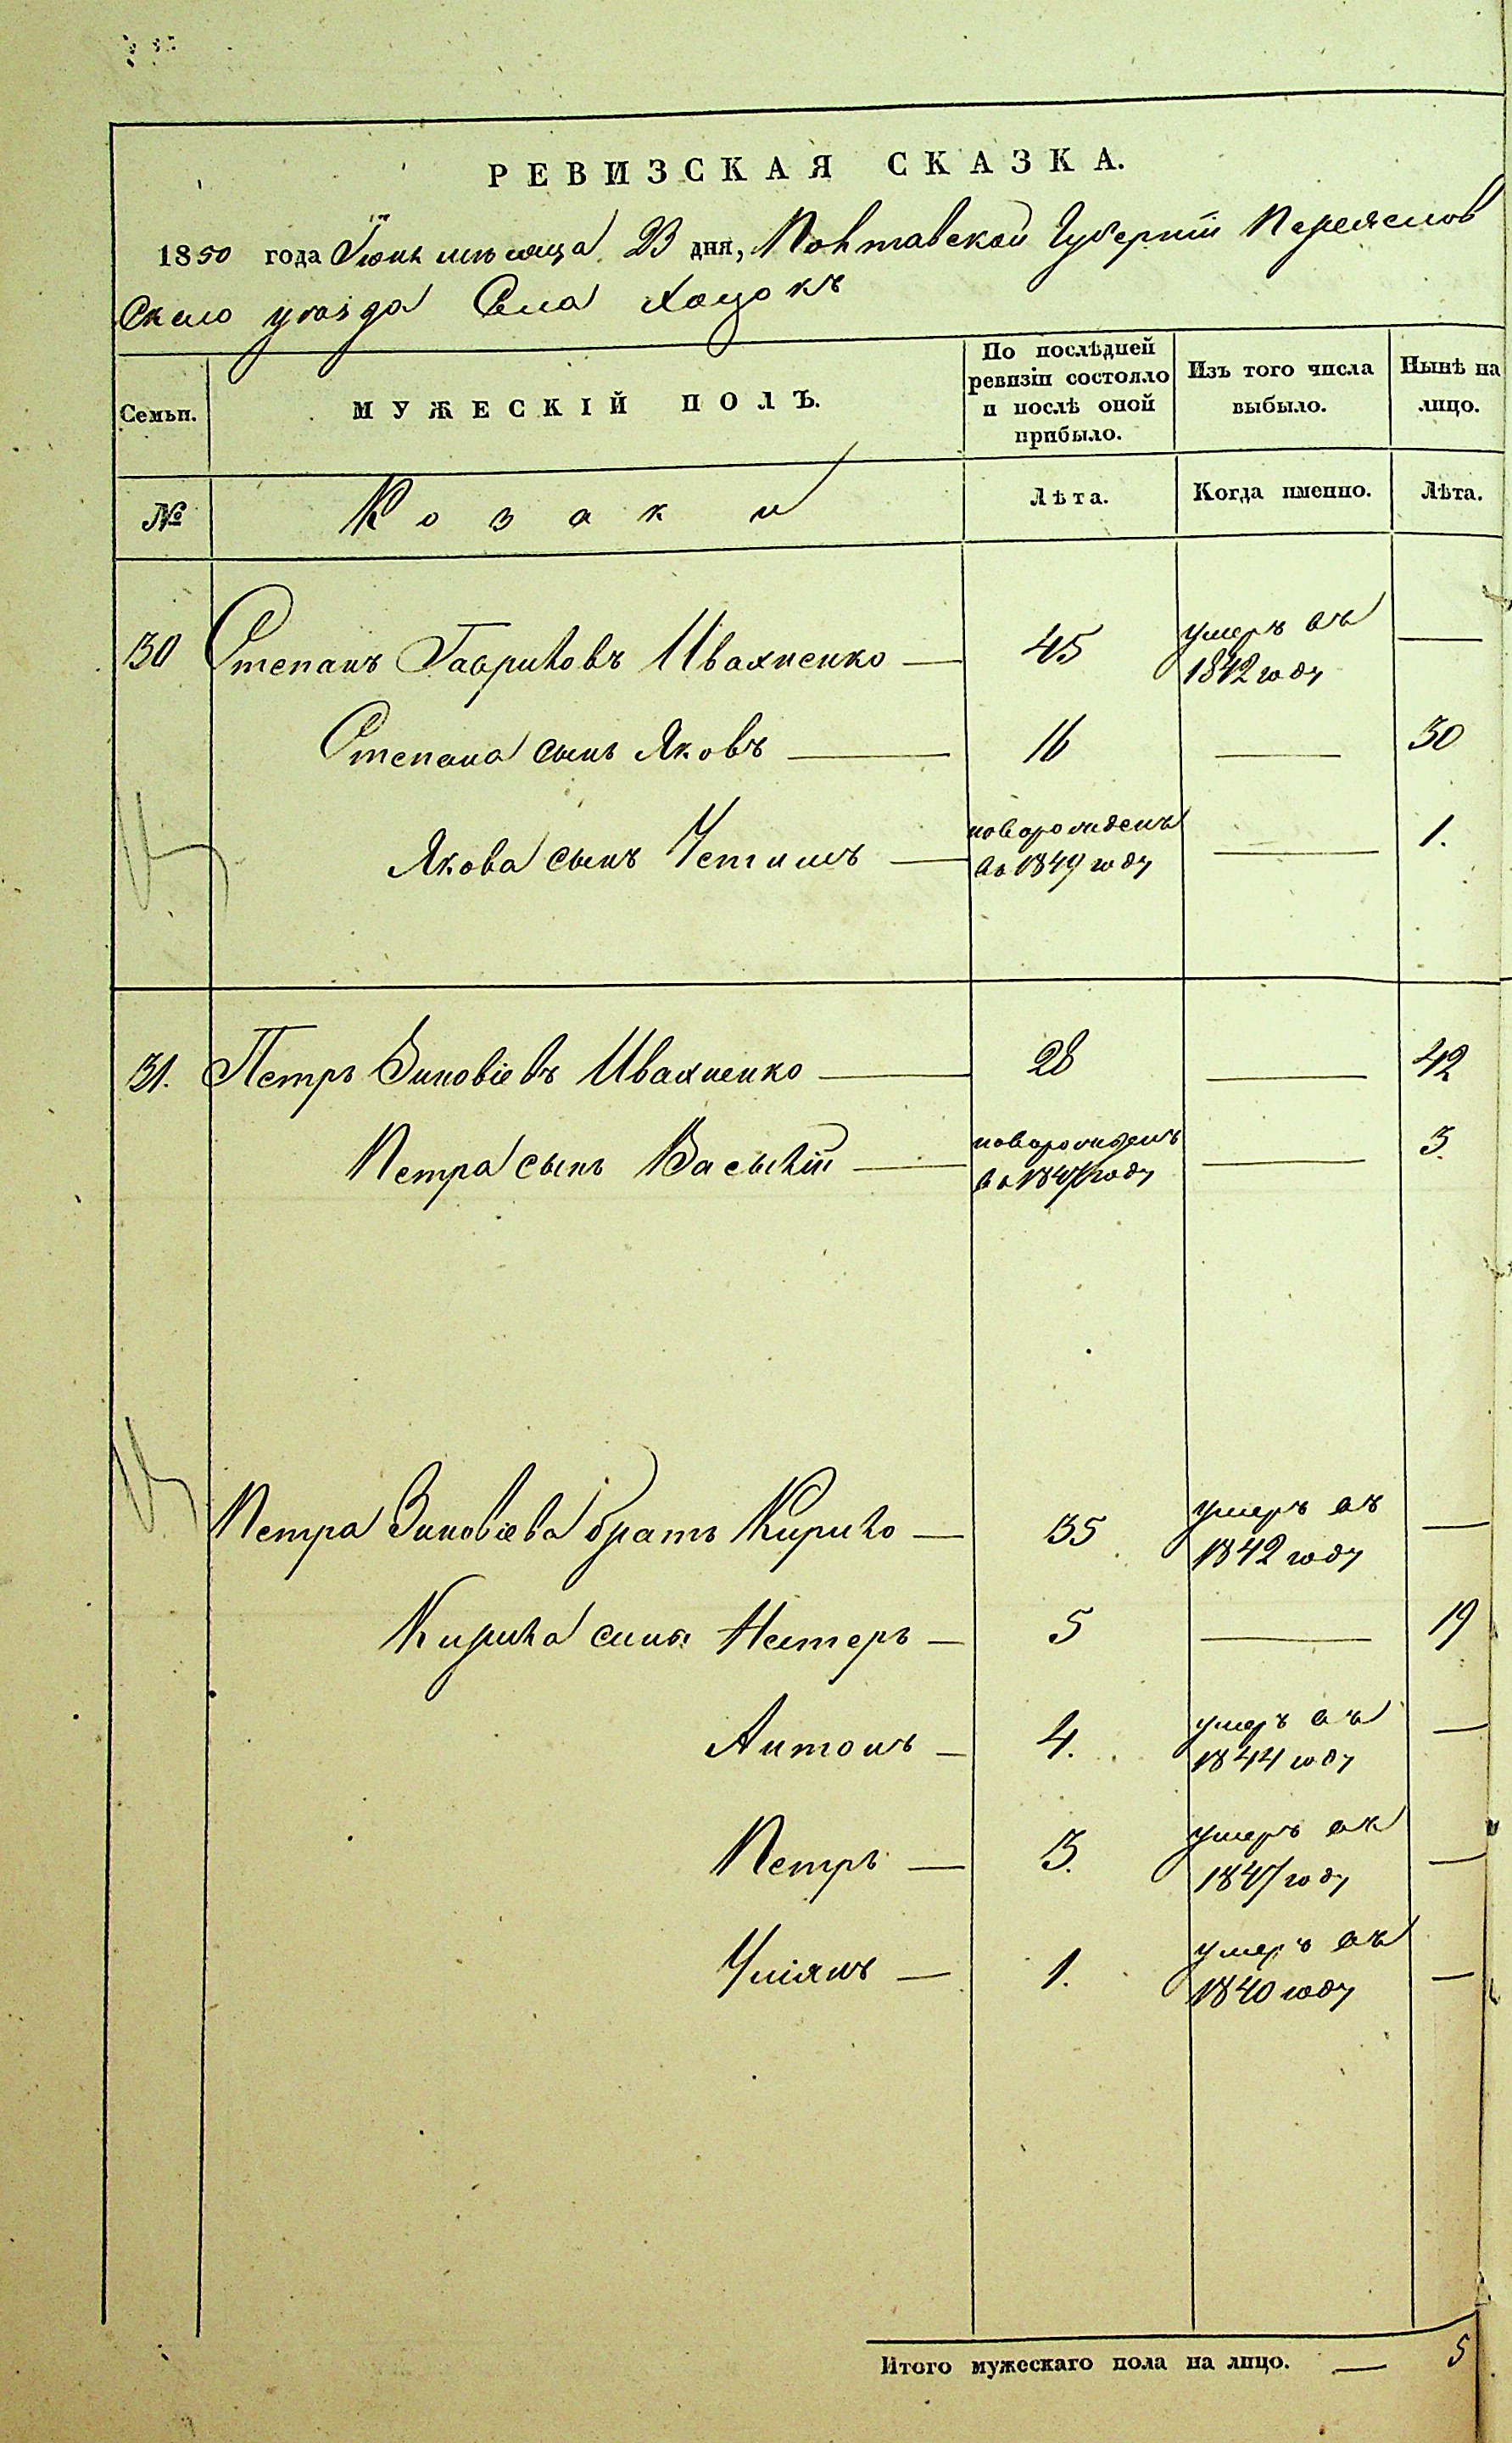 РЕВИЗСКАЯ СКАЗКА.
1850 года Іюня мѣсяца 23 дня, Полтавской Губерніи Переяслов
скаго уѣзда Села Хоцокъ
Семьи.
МУЖЕСКІЙ ПОЛЪ.
По послѣдней
ревизіи состояло
и послѣ оной
прибыло.
Изъ того числа
выбыло.
Нынѣ на
лицо.
№
Козаки
Лѣта.
Когда именно.
Лѣта.
30 Степанъ Гавриловъ Ивахненко — 45 умеръ въ 1842 году —
Степана сынъ Яковъ — 16 — 30
Якова сынъ Устимъ — новорожденъ въ 1849 году — 1.
31. Петръ Зиновіевъ Ивахненко — 28 — 42
Петра сынъ Василій — новорожденъ въ 1847 году — 3.
Петра Зиновіева братъ Кирило — 35 умеръ въ 1842 году —
Кирила сыны Нестеръ — 5 — 19
Антонъ — 4. умеръ въ 1844 году —
Петръ — 3. умеръ въ 1847 году —
Уліянъ — 1. умеръ въ 1840 году —
Итого мужескаго пола на лицо. — 5